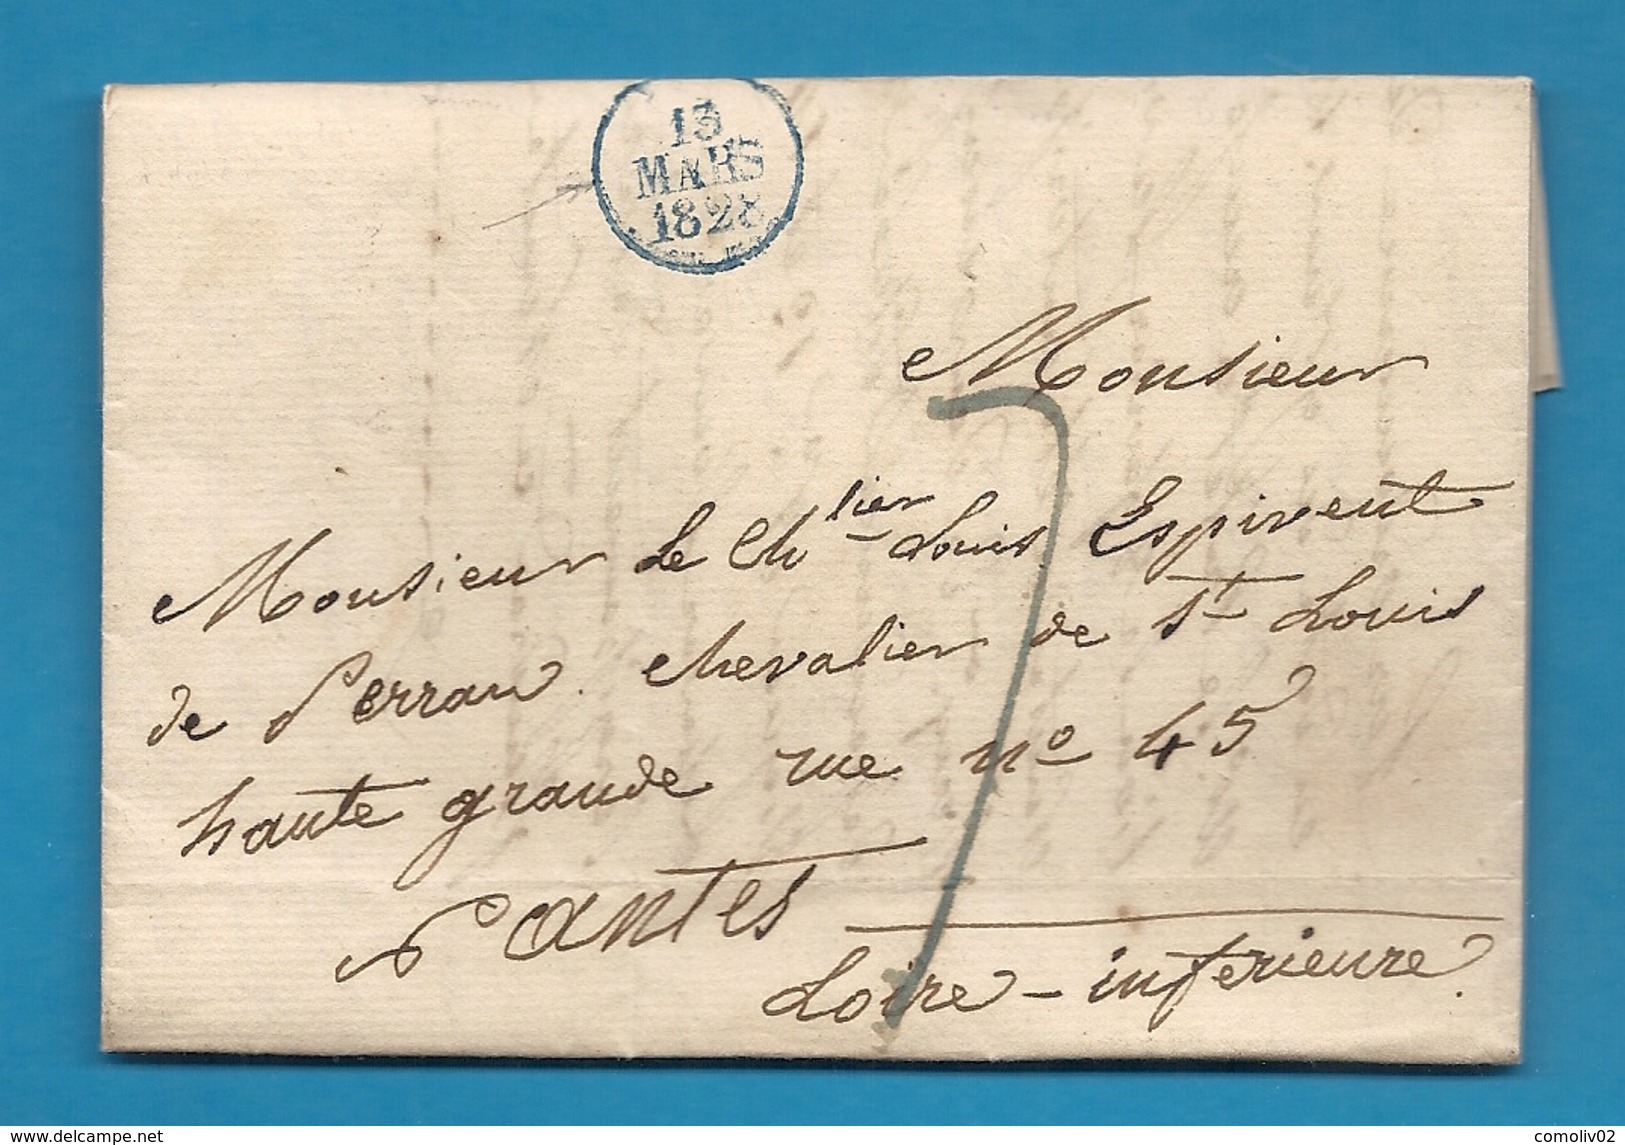 13
MARS
1828
Monsieur
Monsieur Le Chlier Louis Espivent
de Perrau. chevalier de St Louis
haute grande rue no 45
Nantes
Loire-inferieure.
7
delcampe.net
comoliv02